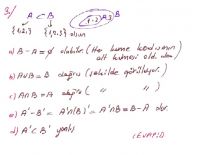 3) A ⊂ B
{1,2} {1,2,3} olsun
1,2 A 3 B
a) B - A = ∅ olabilir (Her küme kendisinin
alt kümesi old. dan)
b) A∪B = B doğru (şekilde görülüyor.)
c) A∩B = A doğru ( " " )
e) A' - B' = A'∩(B')' = A'∩B = B - A dır.
d) A' ⊂ B' yanlış
(CEVAP: D)